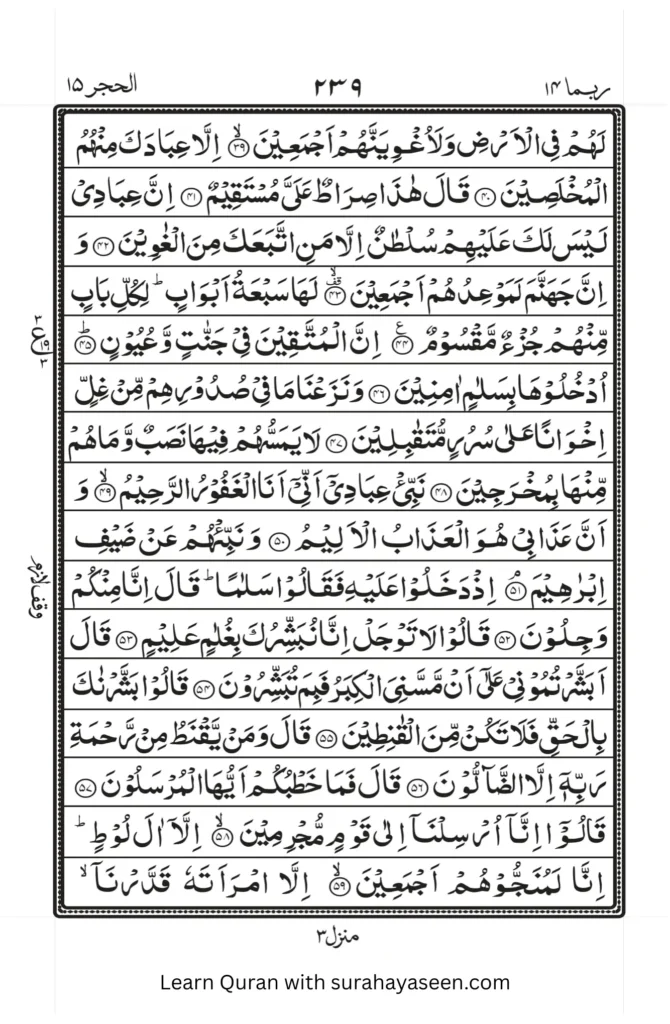 ربما ١٤ ٢٣٩ الحجر ١٥
لَهُمْ فِی الْاَرْضِ وَلَاُغْوِیَنَّهُمْ اَجْمَعِیْنَ ﴿۳۹﴾ۙ اِلَّا عِبَادَكَ مِنْهُمُ
الْمُخْلَصِیْنَ ﴿۴۰﴾ قَالَ هٰذَا صِرَاطٌ عَلَیَّ مُسْتَقِیْمٌ ﴿۴۱﴾ اِنَّ عِبَادِیْ
لَیْسَ لَكَ عَلَیْهِمْ سُلْطٰنٌ اِلَّا مَنِ اتَّبَعَكَ مِنَ الْغٰوِیْنَ ﴿۴۲﴾ وَ
اِنَّ جَهَنَّمَ لَمَوْعِدُهُمْ اَجْمَعِیْنَ ﴿۴۳﴾ لَهَا سَبْعَةُ اَبْوَابٍ ؕ لِكُلِّ بَابٍ
مِّنْهُمْ جُزْءٌ مَّقْسُوْمٌ ﴿۴۴﴾ع اِنَّ الْمُتَّقِیْنَ فِیْ جَنّٰتٍ وَّعُیُوْنٍ ﴿۴۵﴾ؕ
اُدْخُلُوْهَا بِسَلٰمٍ اٰمِنِیْنَ ﴿۴۶﴾ وَنَزَعْنَا مَا فِیْ صُدُوْرِهِمْ مِّنْ غِلٍّ
اِخْوَانًا عَلٰی سُرُرٍ مُّتَقٰبِلِیْنَ ﴿۴۷﴾ لَا یَمَسُّهُمْ فِیْهَا نَصَبٌ وَّمَا هُمْ
مِّنْهَا بِمُخْرَجِیْنَ ﴿۴۸﴾ نَبِّئْ عِبَادِیْۤ اَنِّیْۤ اَنَا الْغَفُوْرُ الرَّحِیْمُ ﴿۴۹﴾ۙ وَ
اَنَّ عَذَابِیْ هُوَ الْعَذَابُ الْاَلِیْمُ ﴿۵۰﴾ وَنَبِّئْهُمْ عَنْ ضَیْفِ
اِبْرٰهِیْمَ ﴿۵۱﴾ۘ اِذْ دَخَلُوْا عَلَیْهِ فَقَالُوْا سَلٰمًا ؕ قَالَ اِنَّا مِنْكُمْ
وَجِلُوْنَ ﴿۵۲﴾ قَالُوْا لَا تَوْجَلْ اِنَّا نُبَشِّرُكَ بِغُلٰمٍ عَلِیْمٍ ﴿۵۳﴾ قَالَ
اَبَشَّرْتُمُوْنِیْ عَلٰۤی اَنْ مَّسَّنِیَ الْكِبَرُ فَبِمَ تُبَشِّرُوْنَ ﴿۵۴﴾ قَالُوْا بَشَّرْنٰكَ
بِالْحَقِّ فَلَا تَكُنْ مِّنَ الْقٰنِطِیْنَ ﴿۵۵﴾ قَالَ وَمَنْ یَّقْنَطُ مِنْ رَّحْمَةِ
رَبِّهٖۤ اِلَّا الضَّآلُّوْنَ ﴿۵۶﴾ قَالَ فَمَا خَطْبُكُمْ اَیُّهَا الْمُرْسَلُوْنَ ﴿۵۷﴾
قَالُوْۤا اِنَّاۤ اُرْسِلْنَاۤ اِلٰی قَوْمٍ مُّجْرِمِیْنَ ﴿۵۸﴾ۙ اِلَّاۤ اٰلَ لُوْطٍ ؕ
اِنَّا لَمُنَجُّوْهُمْ اَجْمَعِیْنَ ﴿۵۹﴾ۙ اِلَّا امْرَاَتَهٗ قَدَّرْنَاۤ ۙ
وقف لازم
منزل ۳
Learn Quran with surahayaseen.com